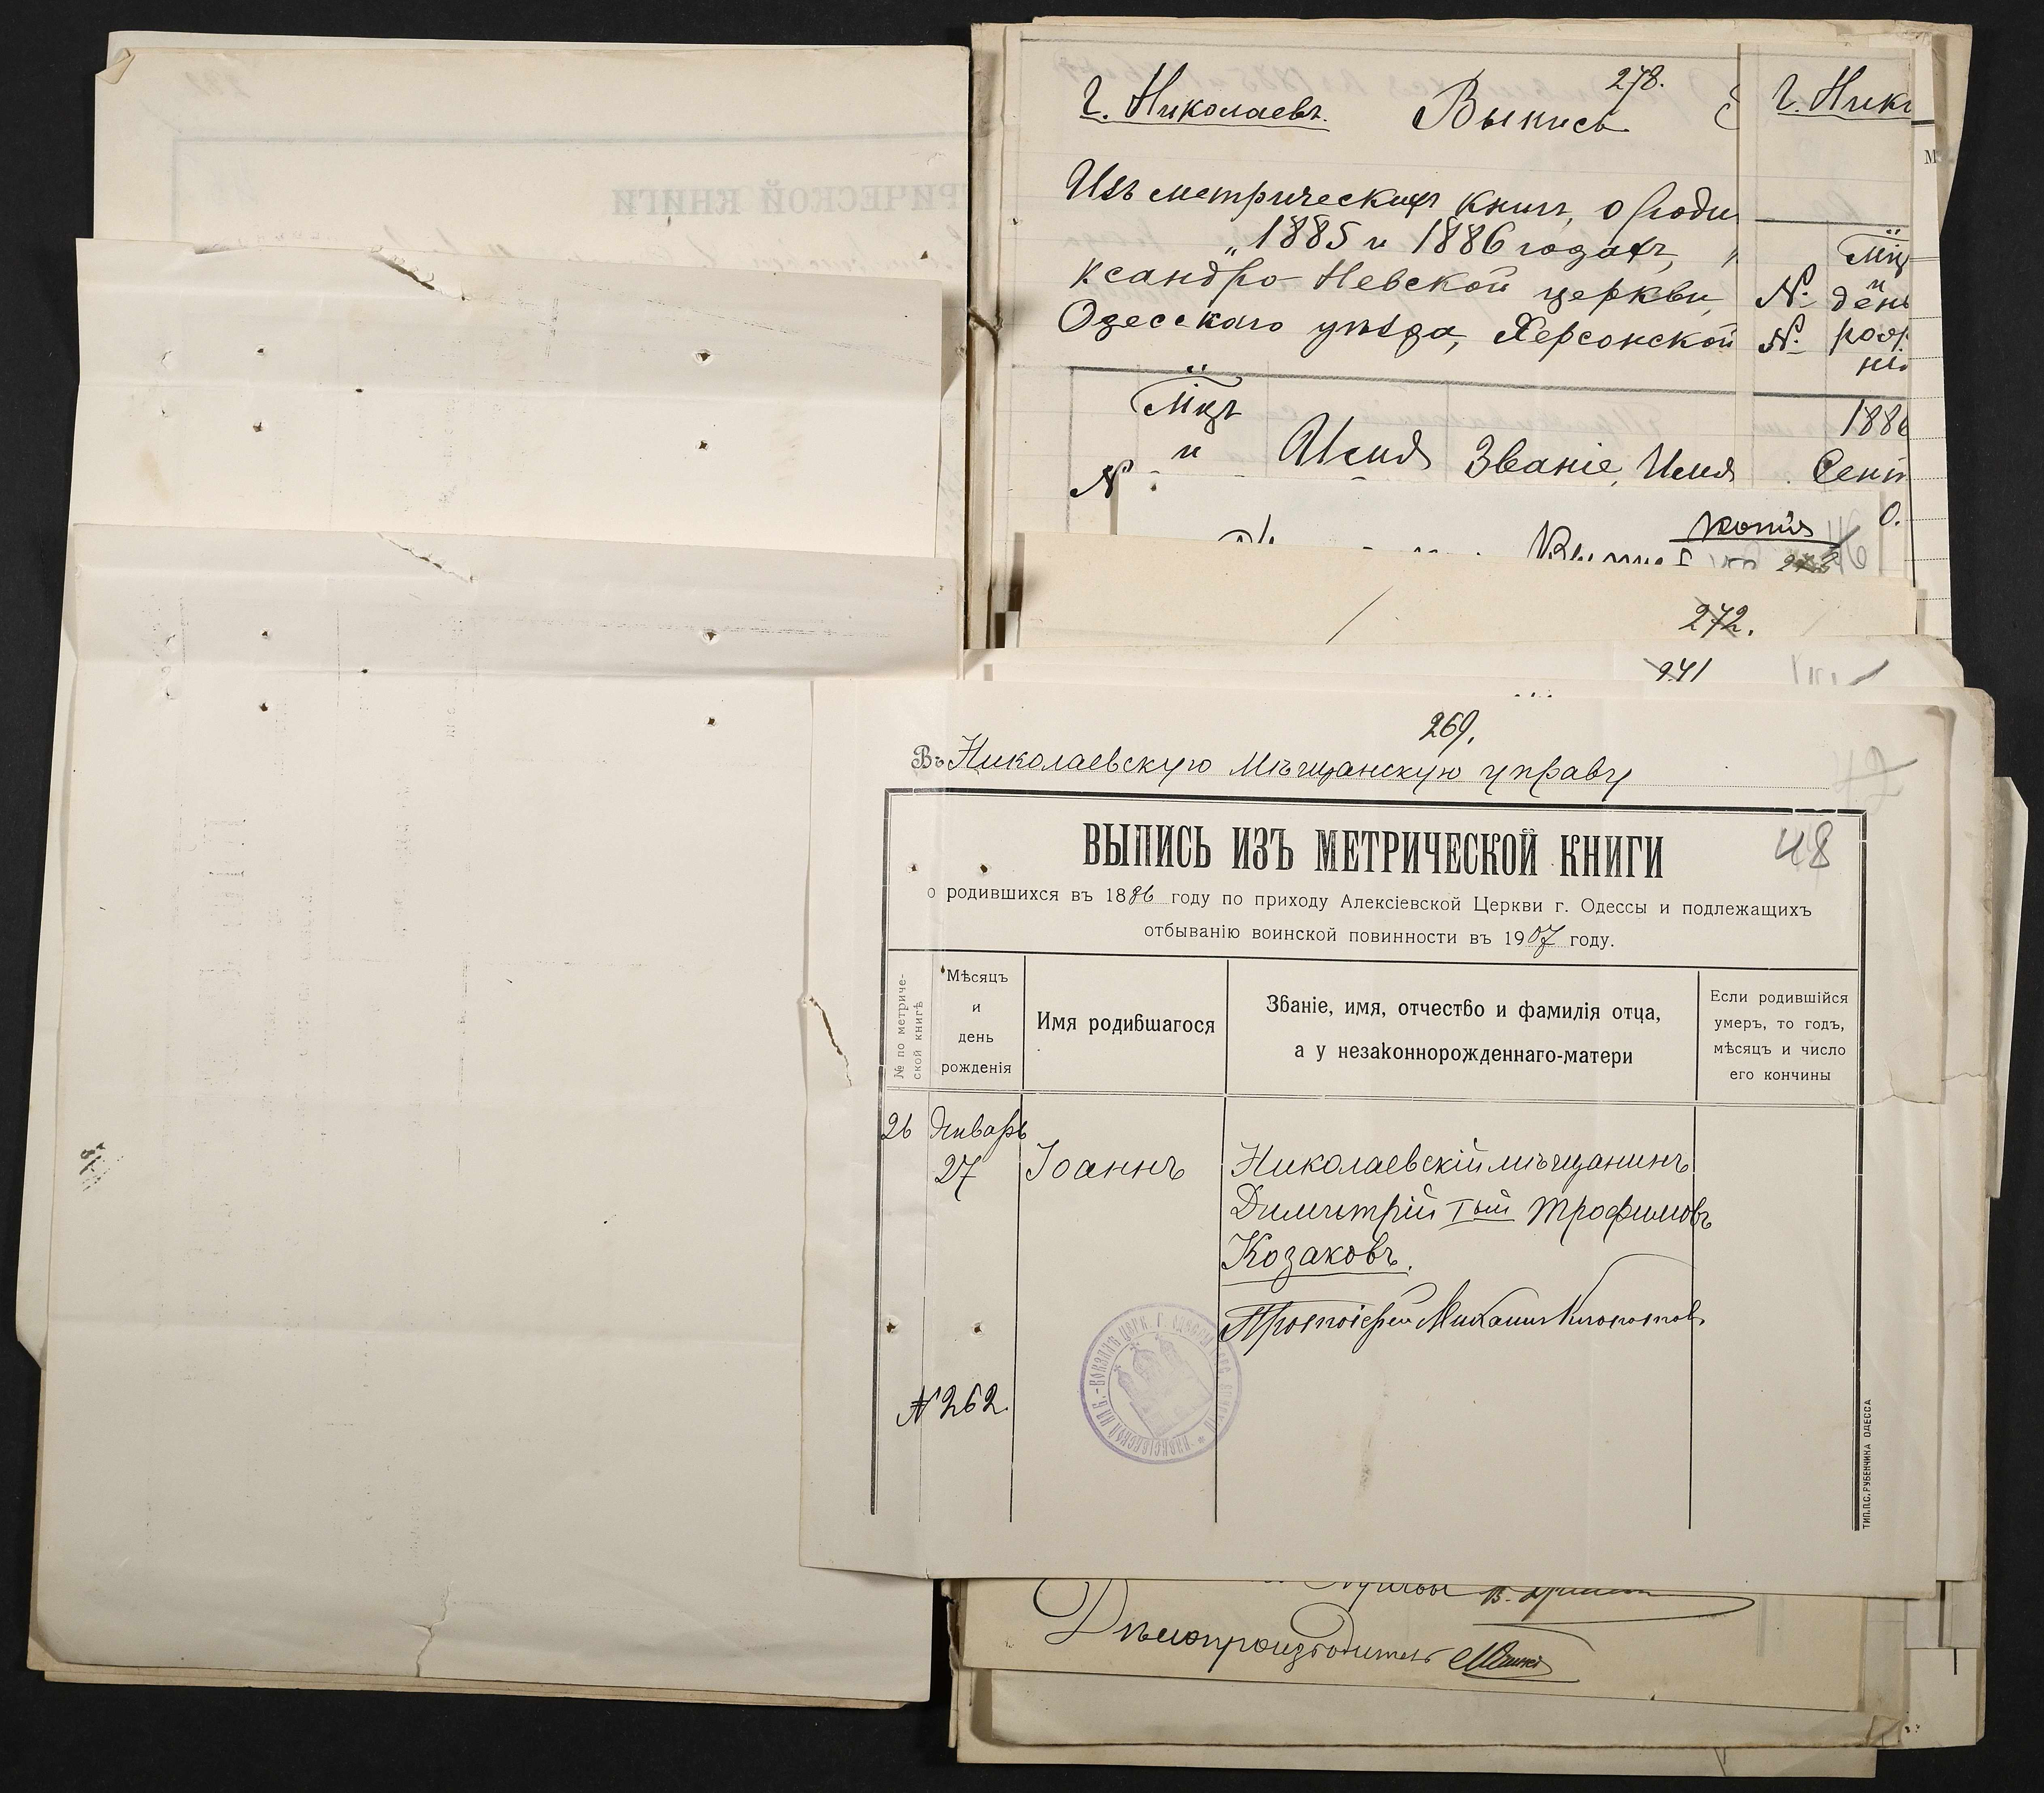 278.
г. Николаевъ. Выпись
Изъ метрическихъ книгъ, о роди
„1885 и 1886 годахъ,
ксандро-Невской церкви,
Одесскаго уѣзда, Херсонской
Мцъ
и
Имя
Званіе, Имя
N
г. Ник
М
Мц
и
N. день
N. рож
ні
1886
Сент
0.
копія
272.
241
269.
Въ Николаевскую Мѣщанскую управу
42
48
ВЫПИСЬ ИЗЪ МЕТРИЧЕСКОЙ КНИГИ
о родившихся въ 1886 году по приходу Алексіевской Церкви г. Одессы и подлежащихъ
отбыванію воинской повинности въ 1907 году.
№ по метриче-
ской книгѣ
Мѣсяцъ
и
день
рожденія
Имя родившагося
Званіе, имя, отчество и фамилія отца,
а у незаконнорожденнаго-матери
Если родившійся
умеръ, то годъ,
мѣсяцъ и число
его кончины
26 Январь
27 Іоаннъ Николаевскій мѣщанинъ
Димитрій Iый Трофимовъ
Козаковъ.
Протоіерей Михаил
N 262.
ТИП. П.С. РУБЕНЧИКА ОДЕССА
Дѣлопроизводитель
РИЧЕСКОЙ КНИГИ